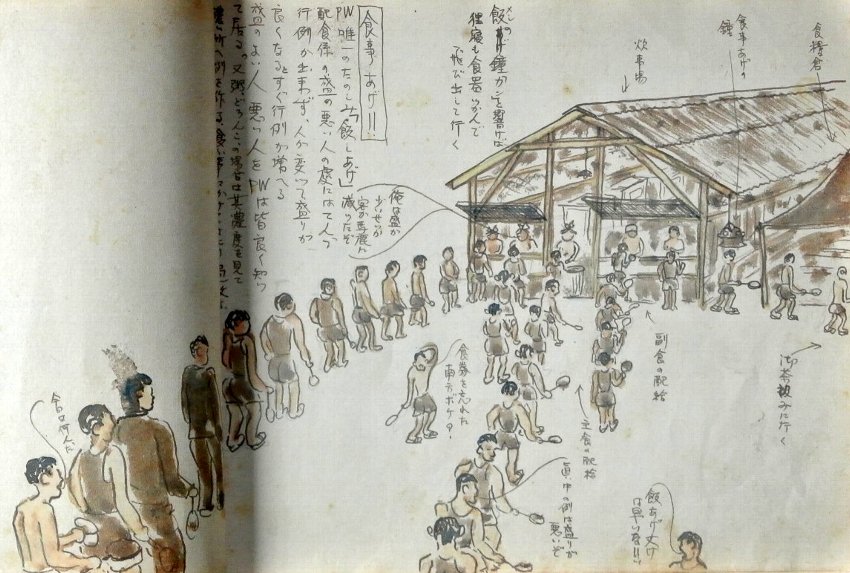 食糧倉
食事あげの
鐘
炊事場
飯あげ鐘が響けば
狸寝も食器つかんで
飛び出して行く
食事あげ!!
PW唯一のたのしみ「飯しあげ」
配食係の盛の悪い人の處にはてんで
行列が出来ず、人が変って盛りが
良くなるとすぐ行列が増へる
盛のよい人、悪い人をPWは皆良く知っ
て居る。又粥、どろんこの場合は其濃度を見て
濃い所へ列を作る、食い事にかけては
俺は盛が
少い
減ったぞ
御茶汲みに行く
副食の配給
主食の配給
食券を忘れた
南方ボケメ!
真中の列は盛りが
悪いぞ
飯あげ丈け
は早いな!!
今日は何んだ